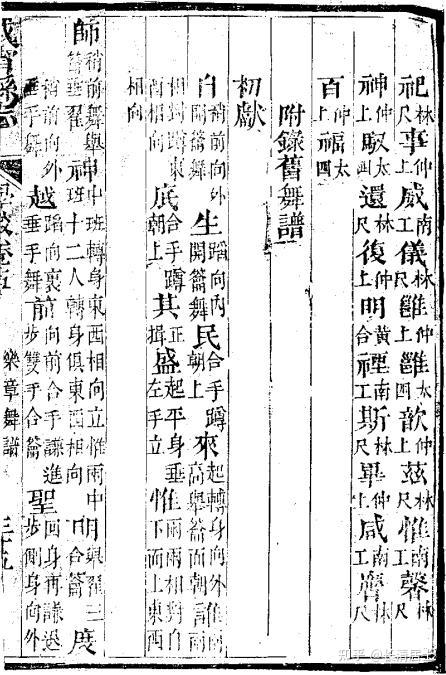 祀林尺事仲上威南工儀林尺雝仲上雝太四歆仲上茲林尺惟南工馨林尺
神仲上馭太四還林尺復仲上明黃合禋南工斯林尺畢仲上咸南工膺林尺
百仲上福太四
附錄舊舞譜
初獻
自稍前向外開籥舞生蹈向內開籥舞民合手蹲朝上來起轉身向外高舉籥面朝
相對蹲東西相向底合手蹲朝上其正揖盛起平身垂左手立惟兩兩相對自下而上東西
相向
師稍前舞舉籥垂翟神中班轉身東西相向立惟兩中班十二人轉身俱東西相向明舉翟三合籥度
稍前向外垂手舞越蹈向裏垂手舞前向前合手謙進步雙手合籥聖回身再謙退步側身向外
樂章舞譜
知乎